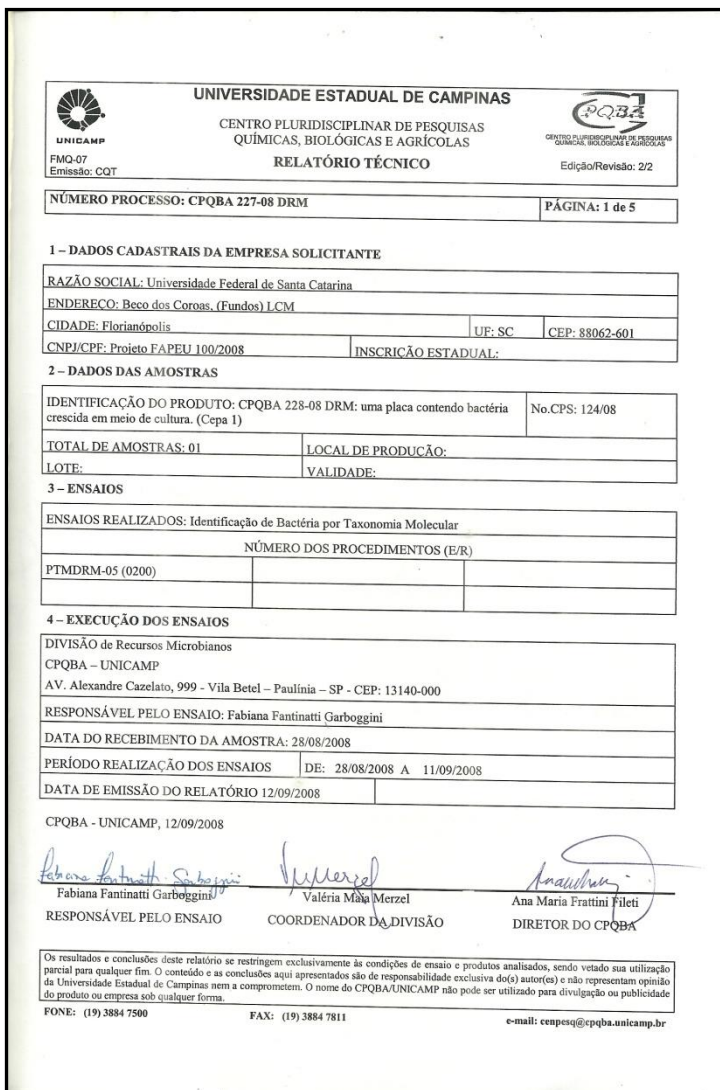 UNICAMP
FMQ-07
Emissão: CQT
UNIVERSIDADE ESTADUAL DE CAMPINAS
CENTRO PLURIDISCIPLINAR DE PESQUISAS
QUÍMICAS, BIOLÓGICAS E AGRÍCOLAS
RELATÓRIO TÉCNICO
CPQBA
CENTRO PLURIDISCIPLINAR DE PESQUISAS
QUÍMICAS, BIOLÓGICAS E AGRÍCOLAS
Edição/Revisão: 2/2
NÚMERO PROCESSO: CPQBA 227-08 DRM PÁGINA: 1 de 5
1 – DADOS CADASTRAIS DA EMPRESA SOLICITANTE
RAZÃO SOCIAL: Universidade Federal de Santa Catarina
ENDEREÇO: Beco dos Coroas, (Fundos) LCM
CIDADE: Florianópolis UF: SC CEP: 88062-601
CNPJ/CPF: Projeto FAPEU 100/2008 INSCRIÇÃO ESTADUAL:
2 – DADOS DAS AMOSTRAS
IDENTIFICAÇÃO DO PRODUTO: CPQBA 228-08 DRM: uma placa contendo bactéria No.CPS: 124/08
crescida em meio de cultura. (Cepa 1)
TOTAL DE AMOSTRAS: 01 LOCAL DE PRODUÇÃO:
LOTE: VALIDADE:
3 – ENSAIOS
ENSAIOS REALIZADOS: Identificação de Bactéria por Taxonomia Molecular
NÚMERO DOS PROCEDIMENTOS (E/R)
PTMDRM-05 (0200)
4 – EXECUÇÃO DOS ENSAIOS
DIVISÃO de Recursos Microbianos
CPQBA – UNICAMP
AV. Alexandre Cazelato, 999 - Vila Betel – Paulínia – SP - CEP: 13140-000
RESPONSÁVEL PELO ENSAIO: Fabiana Fantinatti Garboggini
DATA DO RECEBIMENTO DA AMOSTRA: 28/08/2008
PERÍODO REALIZAÇÃO DOS ENSAIOS DE: 28/08/2008 A 11/09/2008
DATA DE EMISSÃO DO RELATÓRIO 12/09/2008
CPQBA - UNICAMP, 12/09/2008
Fabiana Fantinatti Garboggini
Fabiana Fantinatti Garboggini Valéria Maia Merzel Ana Maria Frattini Fileti
RESPONSÁVEL PELO ENSAIO COORDENADOR DA DIVISÃO DIRETOR DO CPQBA
Os resultados e conclusões deste relatório se restringem exclusivamente às condições de ensaio e produtos analisados, sendo vetado sua utilização
parcial para qualquer fim. O conteúdo e as conclusões aqui apresentados são de responsabilidade exclusiva do(s) autor(es) e não representam opinião
da Universidade Estadual de Campinas nem a comprometem. O nome do CPQBA/UNICAMP não pode ser utilizado para divulgação ou publicidade
do produto ou empresa sob qualquer forma.
FONE: (19) 3884 7500 FAX: (19) 3884 7811 e-mail: cenpesq@cpqba.unicamp.br